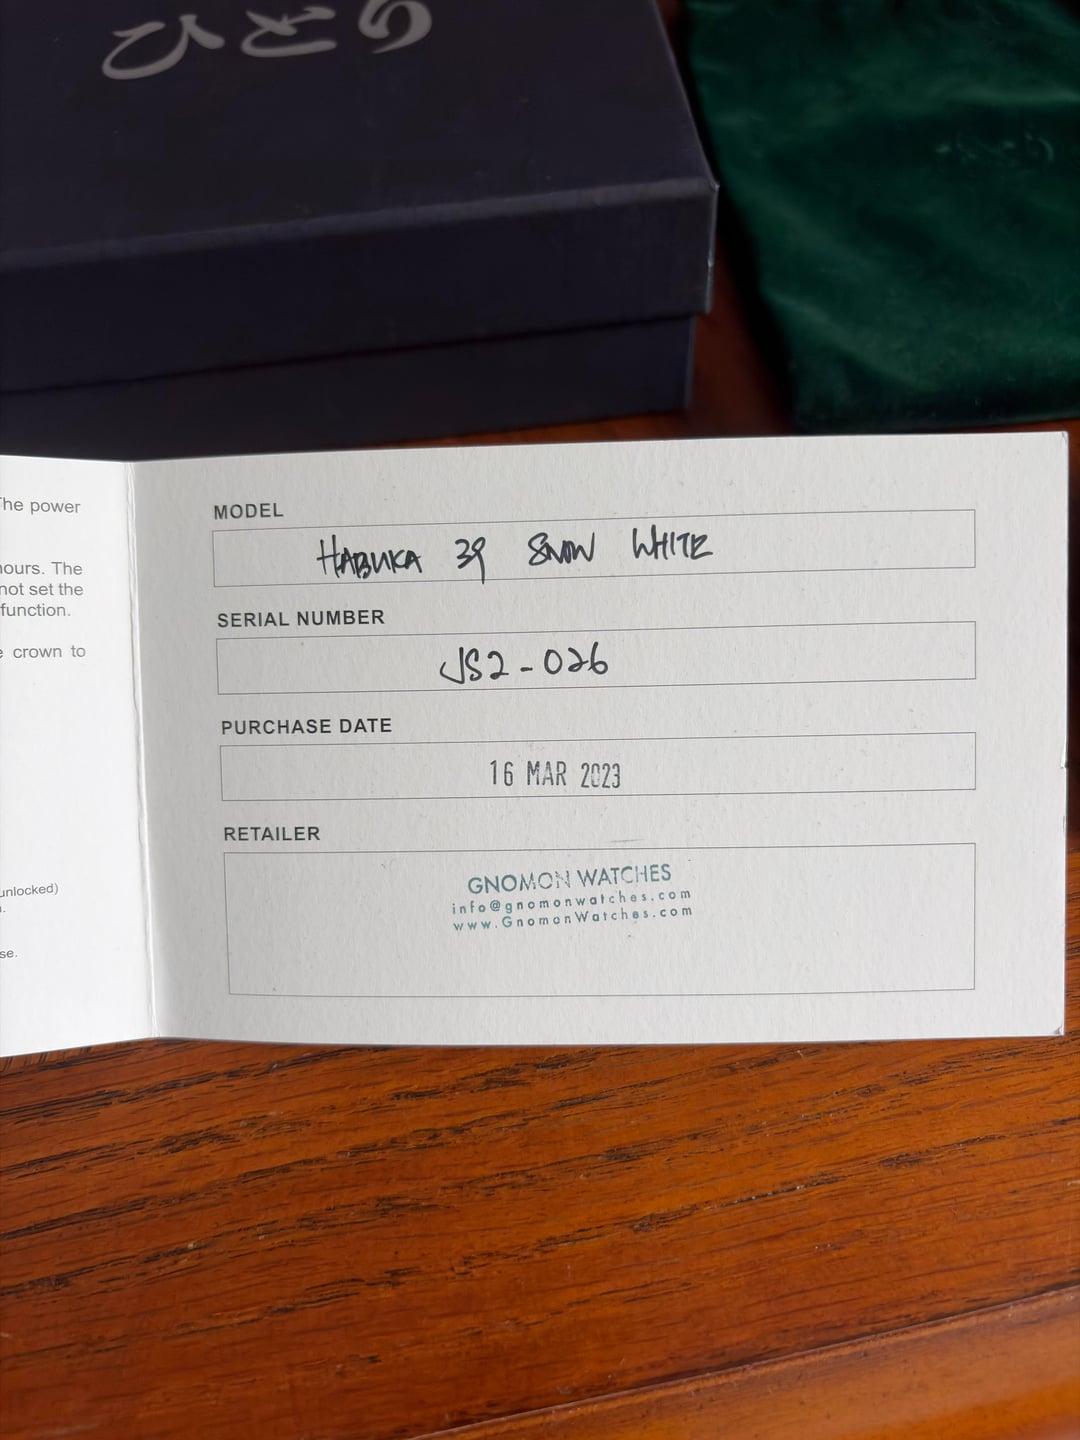 The power
hours. The
not set the
function.
crown to
unlocked)
MODEL
HABUKA 39 SNOW WHITE
SERIAL NUMBER
JS2-026
PURCHASE DATE
16 MAR 2023
RETAILER
GNOMON WATCHES
info@gnomonwatches.com
www.GnomonWatches.com